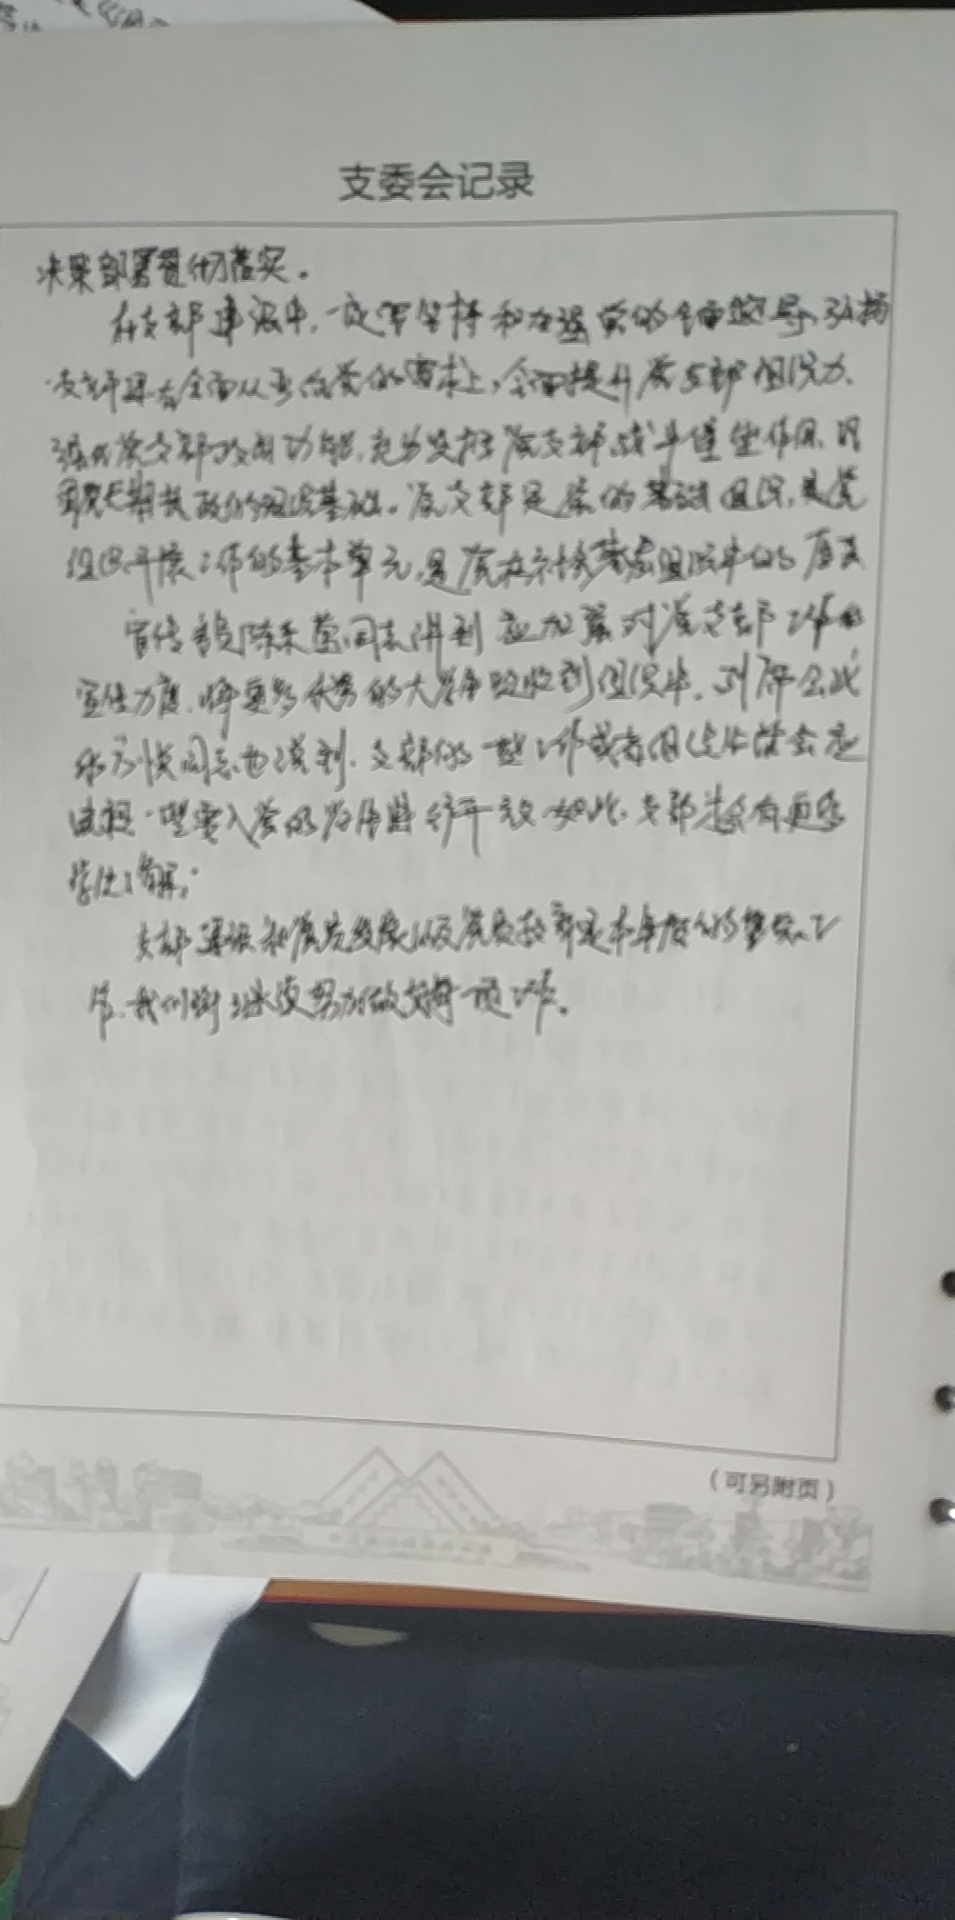 支委会记录
决策部署贯彻落实。
在支部建设中,一定要坚持和加强党的全面领导、弘扬
全面从严治党的要求上,全面提升党支部组织力、
强化党支部政治功能,充分发挥党支部战斗堡垒作用,巩
固党长期执政的组织基础。党支部是党的基础组织,是党
组织开展工作的基本单元,是党在社会基层组织中的
宣传委员陈 同志讲到应加强对党支部工作的
宣传力度,将更多优秀的大学生吸收到组织中。
同志也谈到,支部的一些工作或者组织生活会应
一些要入党的 开放 如此,支部 会有更多
了解;
支部建设和党员发展以及党员教育是本年度的重点工
作,我们将继续努力做好每一项工作。
(可另附页)